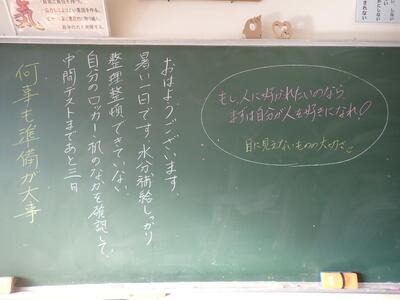 おはようございます。
暑い一日です。水分補給しっかり
整理整頓できていない
自分のロッカー・机のなかを確認して、
中間テストまであと三日
何事も準備が大事
もし、人に好かれたいのなら
まずは自分が人を好きになれ!
目に見えないものの大切さ
気